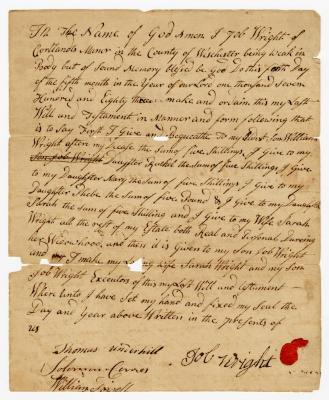 In The Name of God Amen I Job Wright of
Cortlands Manor in the County of Wischester being weak in
Body but of Sound Memory blessed be God Do this fourth Day
of the fifth month in the Year of our Lord one thousand Seven
Hundred and Eighty three make and ordain this my Last
Will and Testament in Manner and form following that
is to Say First I Give and Bequeathe to my Eldest Son William
Wright after my Decase the Sum of five Shillings. I give to my
Son Job Wright Daughter Rachel the sum of five Shillings I Give
to my Daughter Mary the Sum of five Shillings I Give to my
Daughter Phebe the Sum of five Pound & I give to my Daughter
Sarah the Sum of five Shilling and I Give to my Wife Sarah
Wright all the rest of my Estate both Real and Personal During
her Widowhood, and then it is Given to my Son Job Wright
and I make my Loving Wife Sarah Wright and my Son
Job Wright Executors of this my Last Will and Testament
Where unto I have Set my hand and fixed my Seal the
Day and Year above Written in the presents of
us
Thomas Underhill
Job Wright
Solomon
William